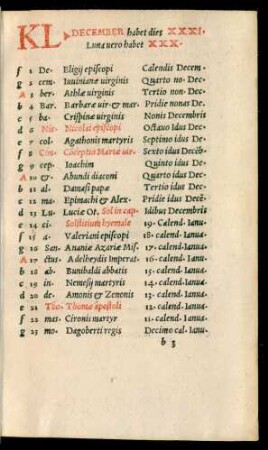 KL DECEMBER habet dies XXXI.
Luna uero habet XXX.
f 1 De- Eligij episcopi Calendis Decem-
g 2 cem- Iuuinianæ uirginis Quarto no- Dec-
A 3 ber- Athlæ uirginis Tertio non- Dec-
b 4 Bar- Barbaræ uir- & mar- Pridie nonas De-
c 5 ba- Crispinæ uirginis Nonis Decembris
d 6 Nic- Nicolai episcopi Octauo idus Dec-
e 7 col- Agathonis martyris Septimo idus De-
f 8 Con- Cõceptio Mariæ uir- Sexto idus Decẽb-
g 9 cep- Ioachim Quinto idus De-
A 10 &- Abundi diaconi Quarto idus Dec-
b 11 al- Damasi papæ Tertio idus Dec-
c 12 ma- Epimachi & Alex- Pridie idus Dec-
d 13 Lu- Luciæ Ot. Sol in cap- Idibus Decembris
e 14 ci- Solstitium hyemale 19- Calend- Ianu-
f 15 a- Valeriani episcopi 18- calend- Ianua-
g 16 San- Ananiæ Azariæ Mis- 17- calend- Ianua-
A 17 ctus- Adelheydis Imperat- 16- calend. Ianua-
b 18 ab- Bunibaldi abbatis 15- calend- Ianua-
c 19 in- Nemesij martyris 14- calend- Ianua-
d 20 de- Amonis & Zenonis 13- calend- Ianua-
e 21 Tho- Thomæ apostoli 12- calend- Ianua-
f 22 mas- Cironis martyr 11- calend- Ianua-
g 23 mo- Dagoberti regis Decimo cal- Ianu-
b 3